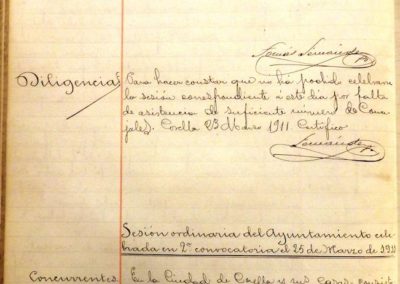 Tomás Fernández
Diligencia Para hacer constar que no há podido celebrarse
la sesión correspondiente á este dia por falta
de asistencia de suficiente número de Conce-
jales. Corella 23 Marzo 1911. Certifico
Fernández
Sesión ordinaria del Ayuntamiento cele-
brada en 2ª convocatoria el 25 de Marzo de 1911
Concurrentes En la Ciudad de Corella y sus casas consis